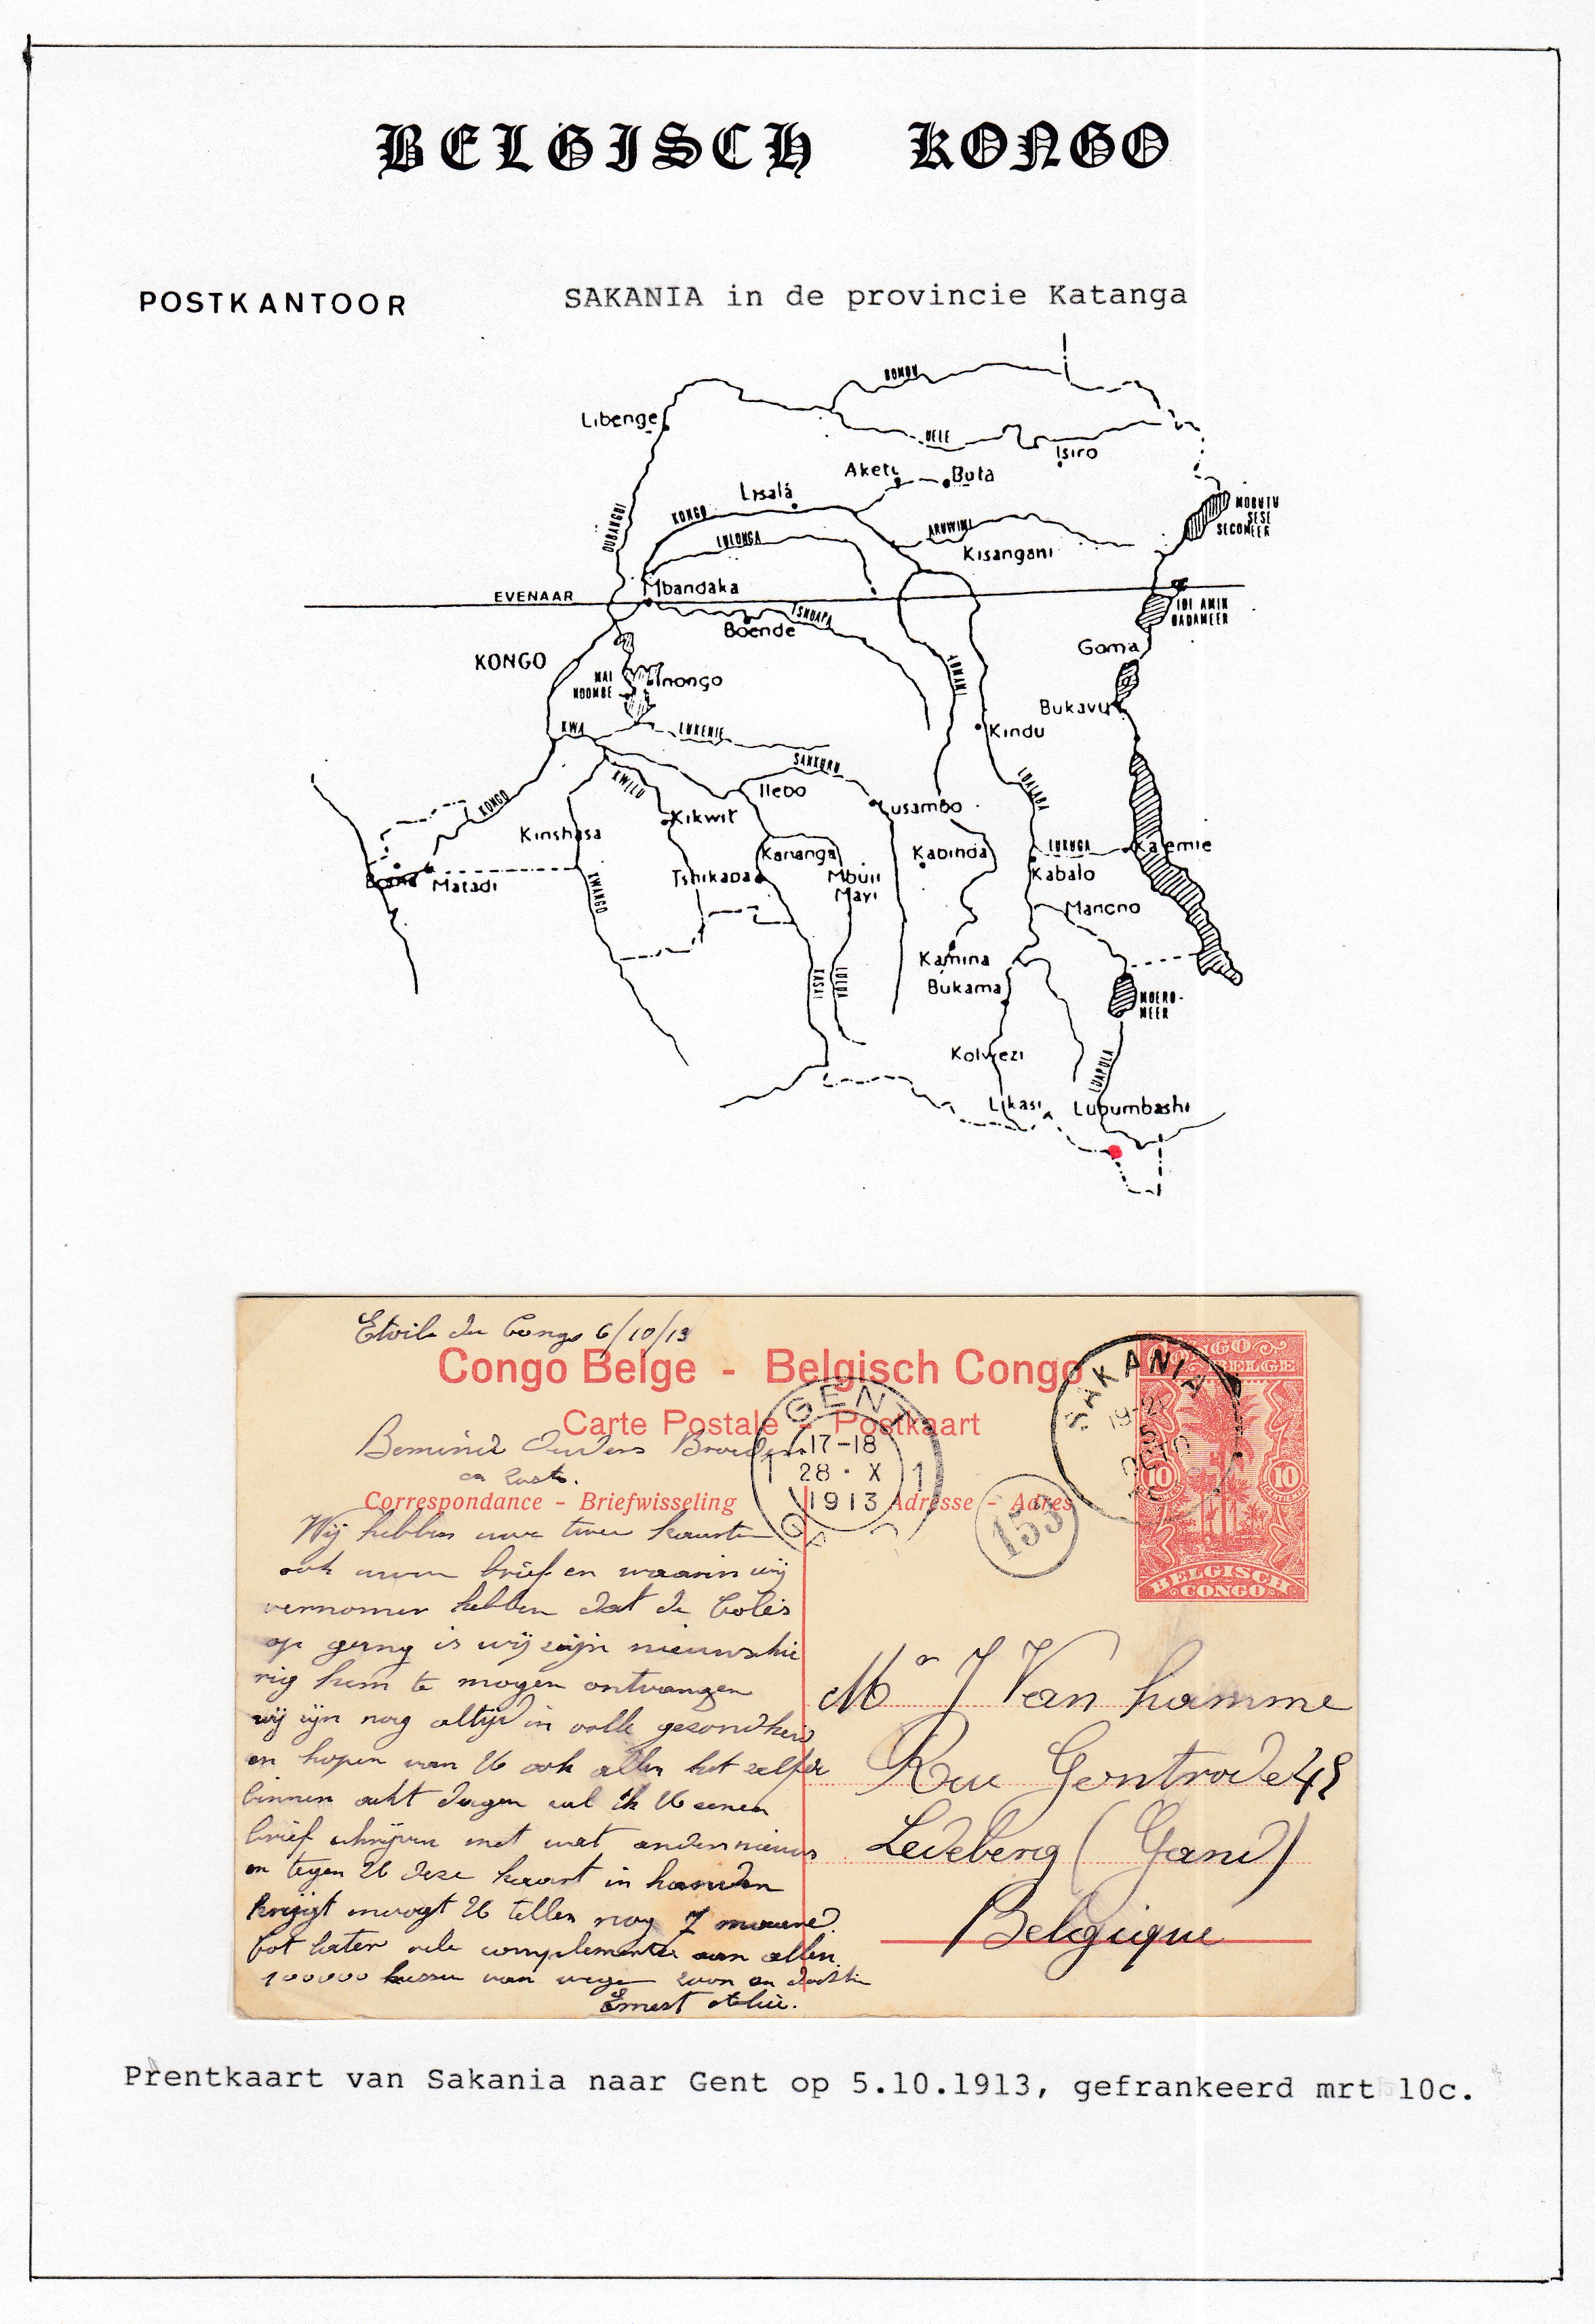 BELGISCH KONGO
POSTKANTOOR
SAKANIA in de provincie Katanga
BOMU
Libenge
UELE
Isiro
Aketi
Buta
Lisala
MOBUTU
SESE
SECOMEER
OUBANGUI
KONGO
LULONGA
ARUWIMI
Kisangani
Mbandaka
EVENAAR
IDI AMIN
DADAMEER
TSHUAPA
Boende
Goma
KONGO
MAI
NDOMBE
Inongo
LOMAMI
Bukavu
KWA
LUKENIE
Kindu
SANKURU
KWILU
Ilebo
LUALABA
KONGO
Kikwit
Lusambo
Kinshasa
Kananga
Kabinda
LUKUGA
Kalemie
Boma
Matadi
KWANGO
Tshikapa
Mbuji
Mayi
Kabalo
Manono
Kamina
KASAI
LULUA
Bukama
MOERO-
MEER
Kolwezi
LUAPULA
Likasi
Lubumbashi
Etoile du Congo 6/10/13
Congo Belge - Belgisch Congo
CONGO
BELGE
SAKANIA
19-2
5
OCTO
GENT
17-18
28 · X
1913
1 1
Carte Postale - Postkaart
Beminde Ouders Broeders
en Zusts.
Correspondance - Briefwisseling
Adresse - Adres
153
10
10
CENTIMES
BELGISCH
CONGO
Wij hebben uwe twee kaarten
ook uwen brief en waarin wij
vernomen hebben dat de Colis
op gang is wij zijn nieuwschie
rig hem te mogen ontvangen
wij zijn nog altijd in volle gezondheid
en hopen van U ook allen het zelfde
binnen acht dagen zal ik U eenen
brief schrijven met wat ander nieuws
en tegen U deze kaart in handen
krijgt moogt U tellen nog 7 maand.
tot later vele complementen aan allen.
100000 kussen van wege zoon en dochter
Ernest
Mr J Van hamme
Rue Gentrode 49
Ledeberg (Gand)
Belgique
Prentkaart van Sakania naar Gent op 5.10.1913, gefrankeerd mrt 10c.